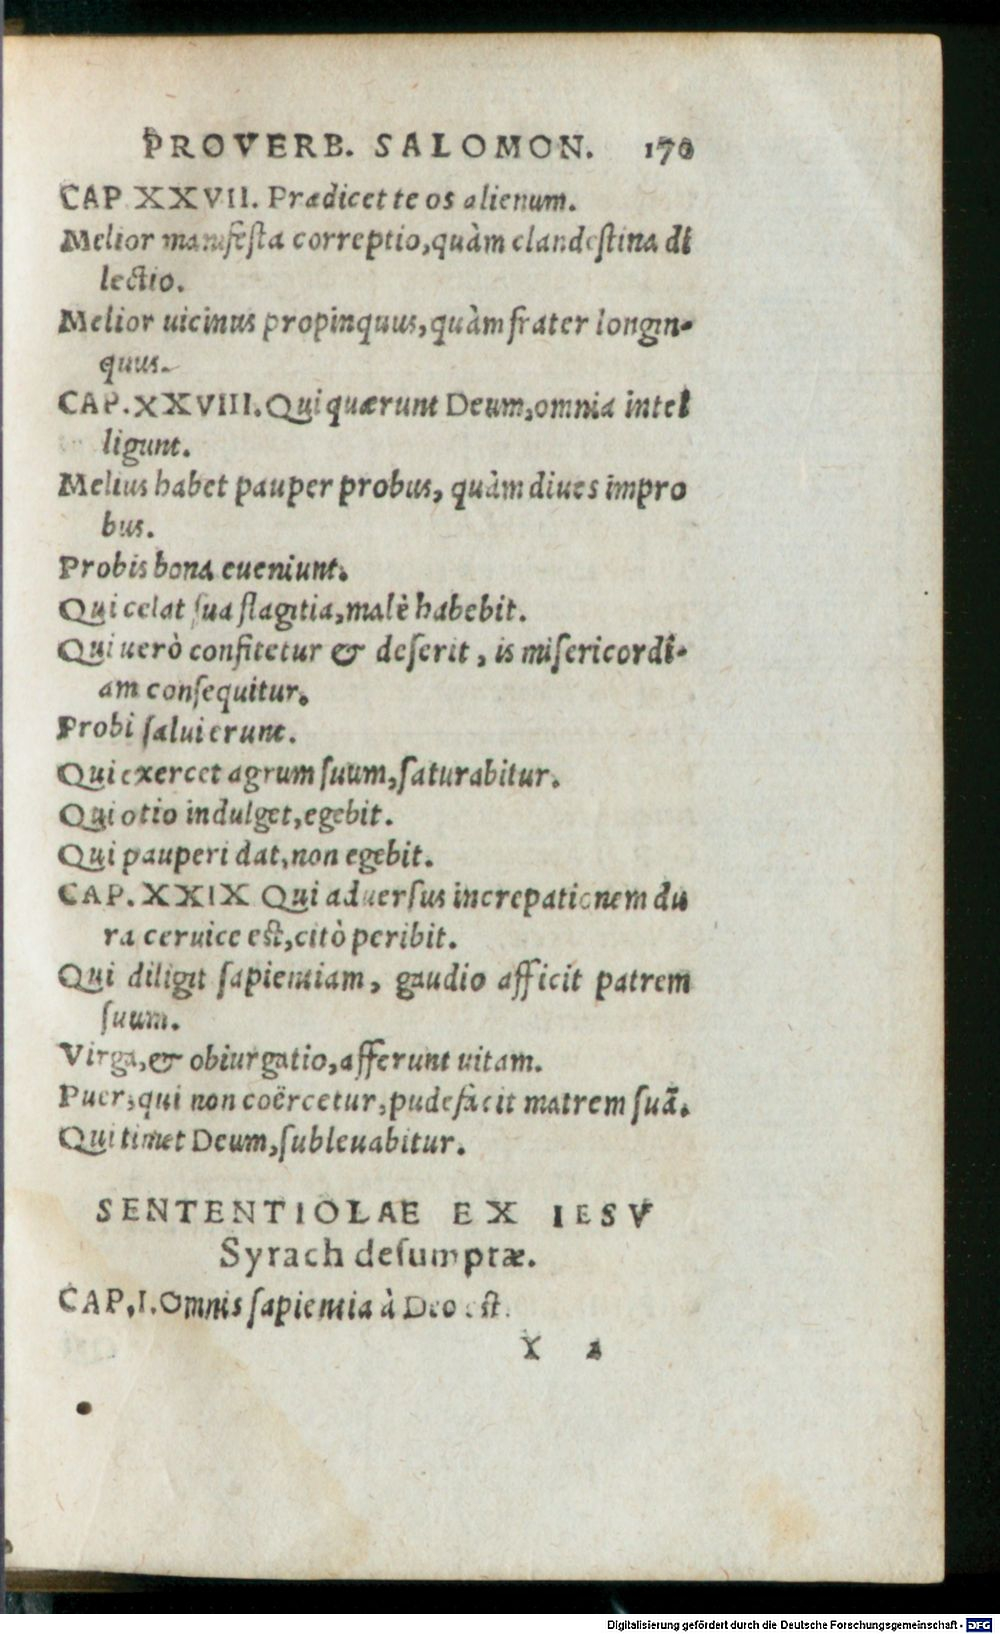 PROVERB. SALOMON. 170
CAP XXVII. Prædicet te os alienum.
Melior manifesta correptio, quàm clandestina di
lectio.
Melior uicinus propinquus, quàm frater longin-
quus.
CAP. XXVIII. Qui quærunt Deum, omnia intel
ligunt.
Melius habet pauper probus, quàm diues impro
bus.
Probis bona eueniunt.
Qui celat sua flagitia, malè habebit.
Qui uerò confitetur & deserit, is misericordi-
am consequitur.
Probi salui erunt.
Qui exercet agrum suum, saturabitur.
Qui otio indulget, egebit.
Qui pauperi dat, non egebit.
CAP. XXIX Qui aduersus increpationem du
ra ceruice est, citò peribit.
Qui diligit sapientiam, gaudio afficit patrem
suum.
Virga, & obiurgatio, afferunt uitam.
Puer, qui non coërcetur, pudefacit matrem suã.
Qui timet Deum, subleuabitur.
SENTENTIOLAE EX IESV
Syrach desumptæ.
CAP. I. Omnis sapientia à Deo est.
X 2
Digitalisierung gefördert durch die Deutsche Forschungsgemeinschaft - DFG